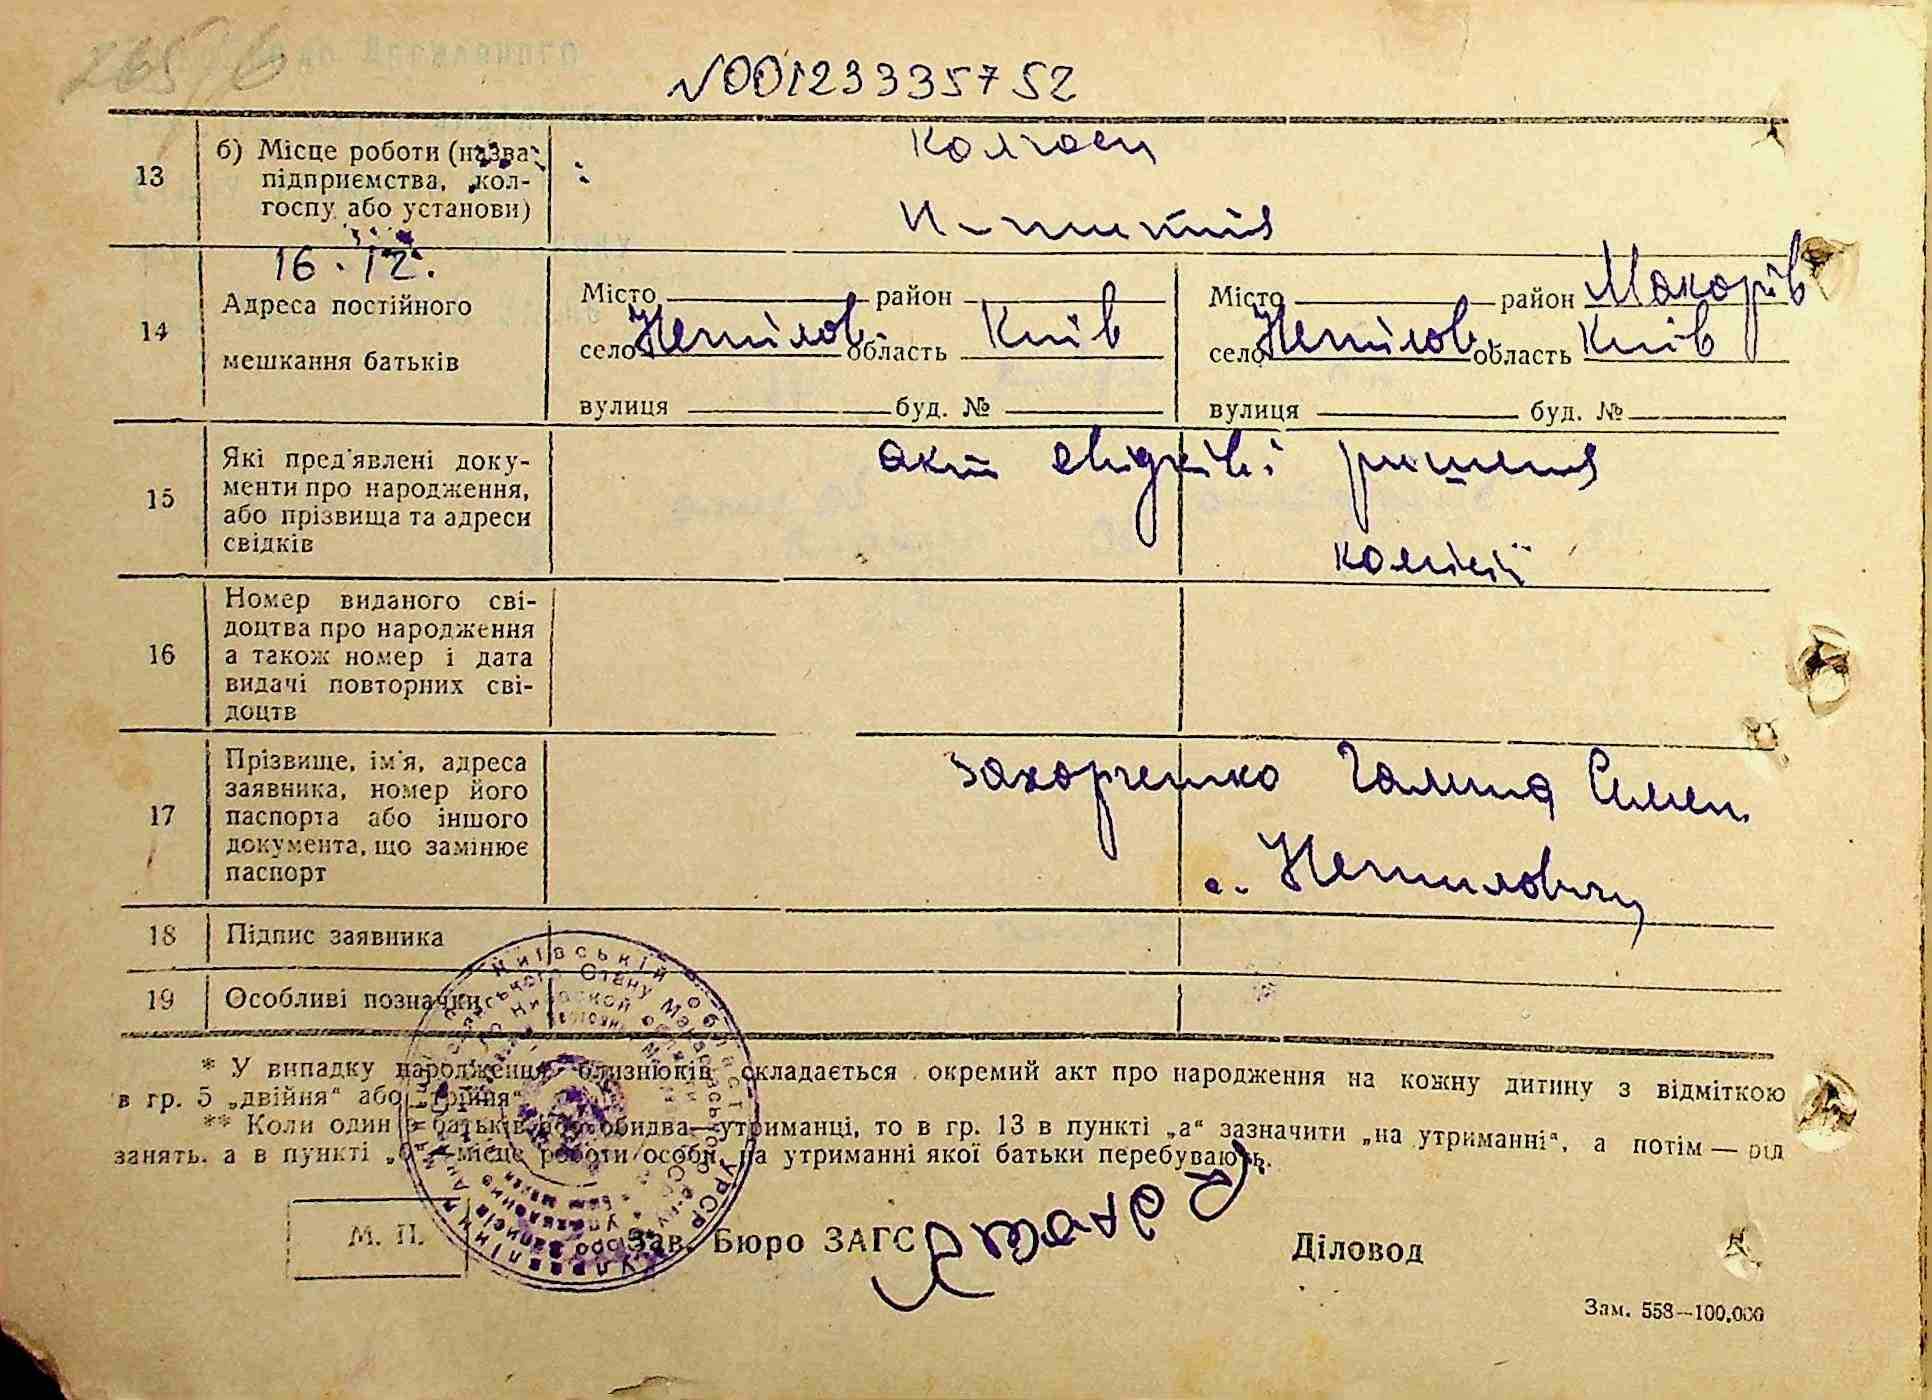 265/6
№001233335752
13
б) Місце роботи (назва
підприємства, кол-
госпу або установи)
Колгосп
16.12.
14
Адреса постійного
мешкання батьків
Місто район
село Непилов. область Київ
вулиця буд. №
Місто район Макарів
село Непилов. область Київ
вулиця буд. №
15
Які пред'явлені доку-
менти про народження,
або прізвища та адреси
свідків
акт свідків і рішення
комісії
16
Номер виданого сві-
доцтва про народження
а також номер і дата
видачі повторних сві-
доцтв
17
Прізвище, ім'я, адреса
заявника, номер його
паспорта або іншого
документа, що замінює
паспорт
Захарченко Галина Семен.
с. Непиловичі
18
Підпис заявника
19
Особливі позначки
* У випадку народження близнюків складається окремий акт про народження на кожну дитину з відміткою
в гр. 5 „двійня“ або „трійня“
** Коли один з батьків або обидва утриманці, то в гр. 13 в пункті „а“ зазначити „на утриманні“, а потім — рід
занять, а в пункті „б“ місце роботи особи, на утриманні якої батьки перебувають.
М. П.
Зав. Бюро ЗАГС
Діловод
Зам. 558—100.000